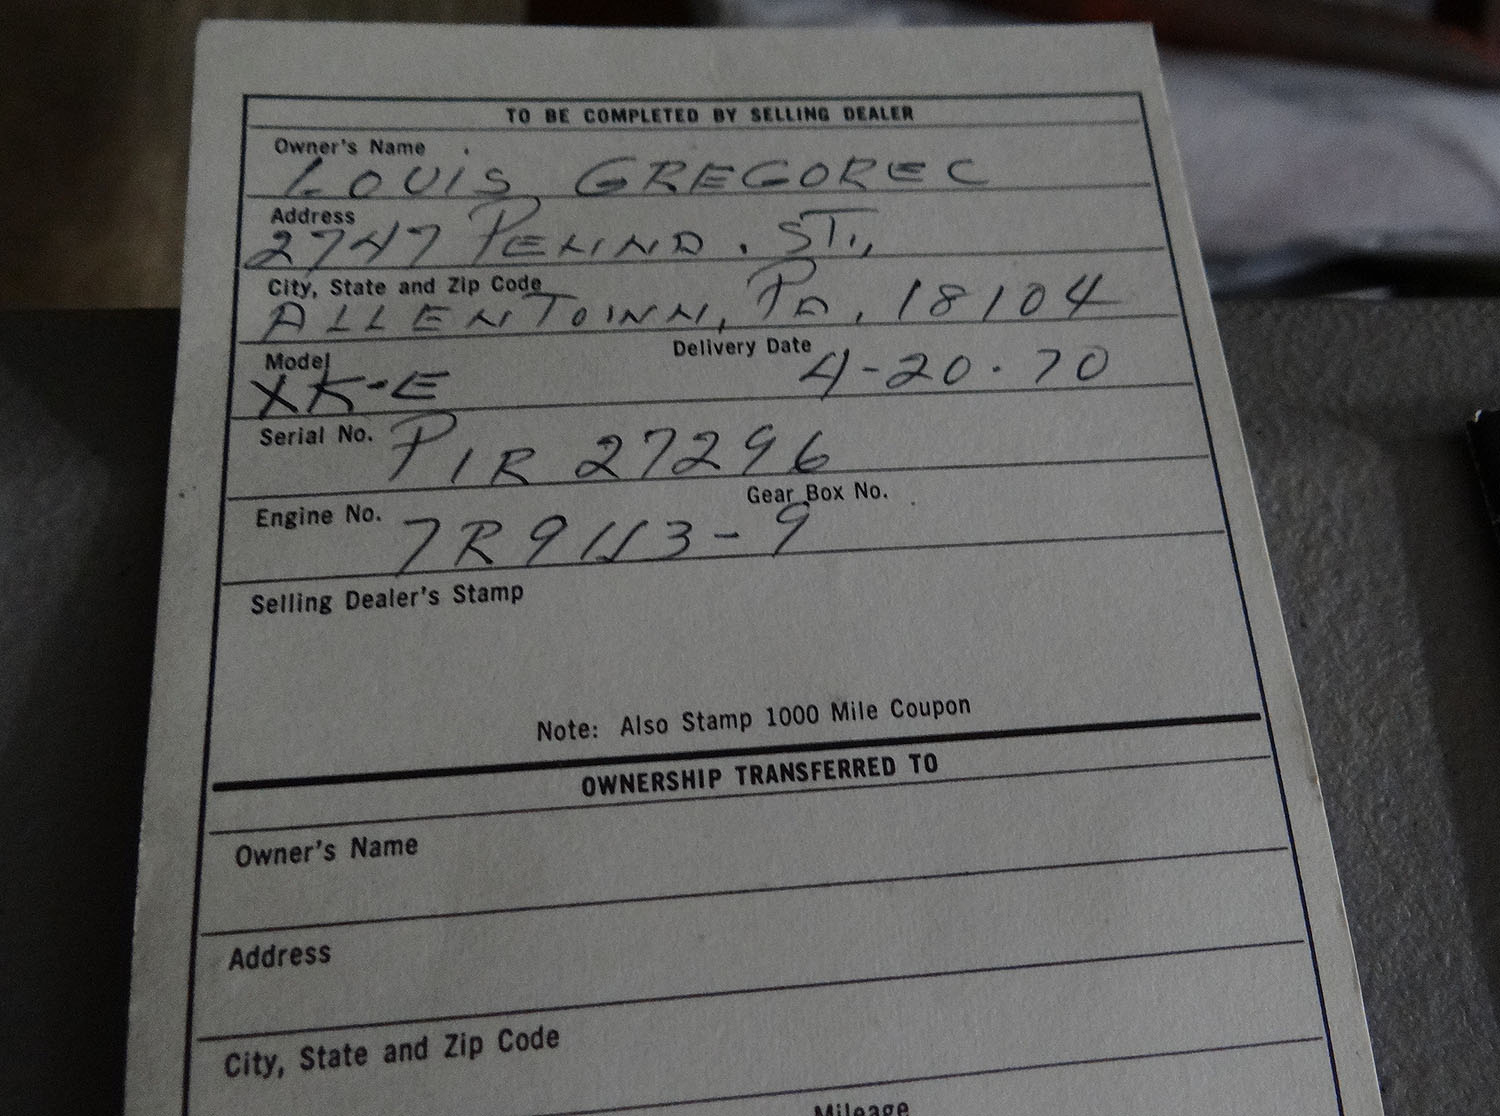 TO BE COMPLETED BY SELLING DEALER
Owner's Name
LOUIS GREGOREC
Address
2747 ST.,
City, State and Zip Code
ALLENTOWN, PA, 18104
Model Delivery Date
XK-E 4-20-70
Serial No. P1R 27296
Gear Box No.
Engine No. 7R9113-9
Selling Dealer's Stamp
Note: Also Stamp 1000 Mile Coupon
OWNERSHIP TRANSFERRED TO
Owner's Name
Address
City, State and Zip Code
Mileage